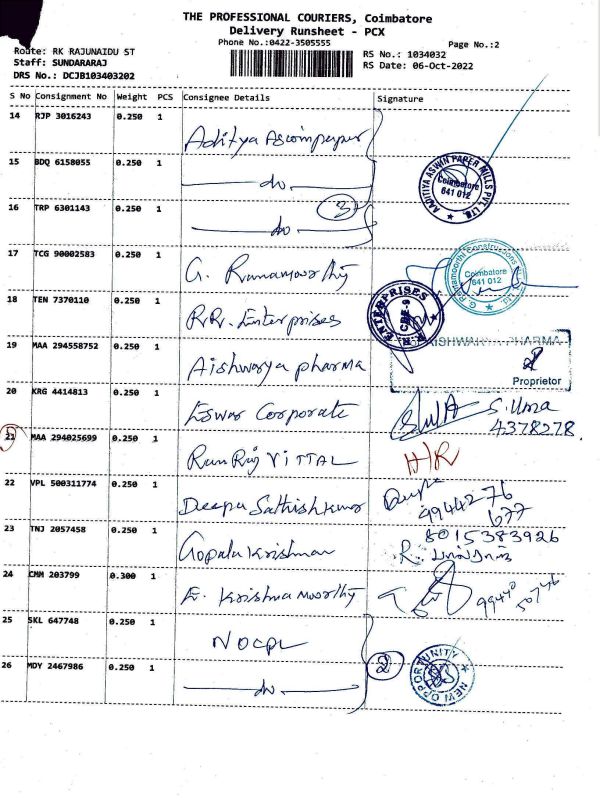 THE PROFESSIONAL COURIERS, Coimbatore
Delivery Runsheet - PCX
Phone No.:0422-3505555
Page No.:2
Route: RK RAJUNAIDU ST
RS No.: 1034032
Staff: SUNDARARAJ
RS Date: 06-Oct-2022
DRS No.: DCJB103403202
S No Consignment No Weight PCS Consignee Details Signature
14 RJP 3016243 0.250 1
15 BDQ 6158055 0.250 1 do.
AADITIYA ASWIN PAPER MILLS PVT. LTD. Coimbatore 641 012
16 TRP 6301143 0.250 1 do. 3
17 TCG 90002583 0.250 1 G. Ramamoorthy
G Ramamoorthi Constructions Coimbatore 641 012
18 TEN 7370110 0.250 1 R.R. Enterprises
R.R. ENTERPRISES CBE-9
19 MAA 294558752 0.250 1 Aishwarya pharma
AISHWARYA PHARMA
Proprietor
20 KRG 4414813 0.250 1 Eswar Corporate S. Uma
4378278.
21 MAA 294025699 0.250 1 Ram Raj VITTAL H/R
22 VPL 500311774 0.250 1 Deepa Sathishkumar Deepa
9944276
677
23 TNJ 2057458 0.250 1 Gopala Krishnan 8015383926
24 CMM 203799 0.300 1 E. Krishna moorthy 99440
50746
25 SKL 647748 0.250 1 NOCPL
26 MDY 2467986 0.250 1 do. 2
NEW OPPORTUNITY